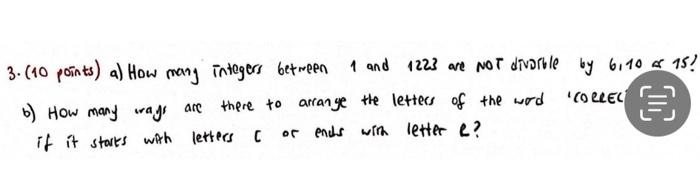 3. (10 points) a) How many integers between 1 and 1223 are NOT divisible by 6, 10 or 15?
b) How many ways are there to arrange the letters of the word 'CORREC
if it starts with letters C or ends with letter R?